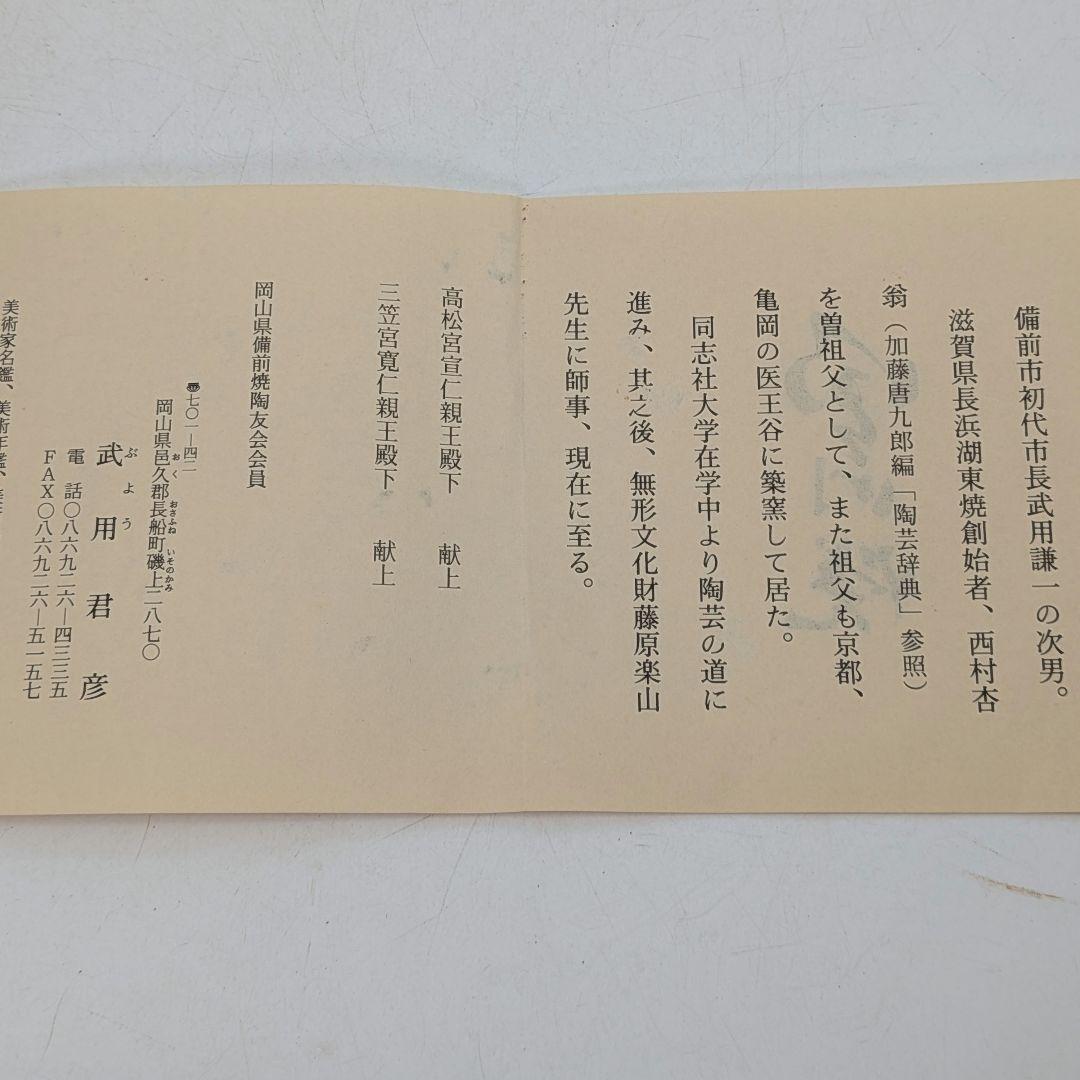 備前市初代市長武用謙一の次男。
滋賀県長浜湖東焼創始者、西村杏
翁（加藤唐九郎編「陶芸辞典」参照）
を曽祖父として、また祖父も京都、
亀岡の医王谷に築窯して居た。
同志社大学在学中より陶芸の道に
進み、其之後、無形文化財藤原楽山
先生に師事、現在に至る。
高松宮宣仁親王殿下　献上
三笠宮寛仁親王殿下　献上
岡山県備前焼陶友会会員
〒七〇一―四二
岡山県邑久郡長船町磯上二八七〇
おく　おさふね　いそのかみ
武用君彦
ぶよう
電話〇八六九二六―四三三五
ＦＡＸ〇八六九二六―五一五七
美術家名鑑、美術年鑑、